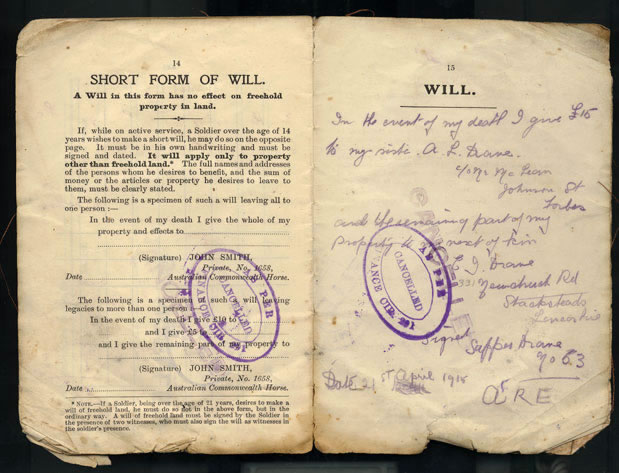 14
SHORT FORM OF WILL.
A Will in this form has no effect on freehold
property in land.
If, while on active service, a Soldier over the age of 14
years wishes to make a short will, he may do so on the opposite
page. It must be in his own handwriting and must be
signed and dated. It will apply only to property
other than freehold land.* The full names and addresses
of the persons whom he desires to benefit, and the sum of
money or the articles or property he desires to leave to
them, must be clearly stated.
The following is a specimen of such a will leaving all to
one person :—
In the event of my death I give the whole of my
property and effects to
(Signature) JOHN SMITH,
Private, No. 1658,
Date Australian Commonwealth Horse.
The following is a specimen of such a will leaving
legacies to more than one person
In the event of my death I give £10 to
and I give £5 to
and I give the remaining part of my property to
(Signature) JOHN SMITH,
Private, No. 1658,
Date Australian Commonwealth Horse.
* NOTE.—If a Soldier, being over the age of 21 years, desires to make a
will of freehold land, he must do so not in the above form, but in the
ordinary way. A will of freehold land must be signed by the Soldier in the
presence of two witnesses, who must also sign the will as witnesses in
the soldier's presence.
AS PER
CANCELLED
15
WILL.
In the event of my death I give £15
to my A. L. Drane.
c/o Mr McLean
Johnson St
Forbes
and the remaining part of my
property to next of kin
J. Drane
Newchurch Rd
Stacksteads
Lancashire
AS PER
CANCELLED
Signed Sapper Drane
No 63
Date 21st April 1915
RE